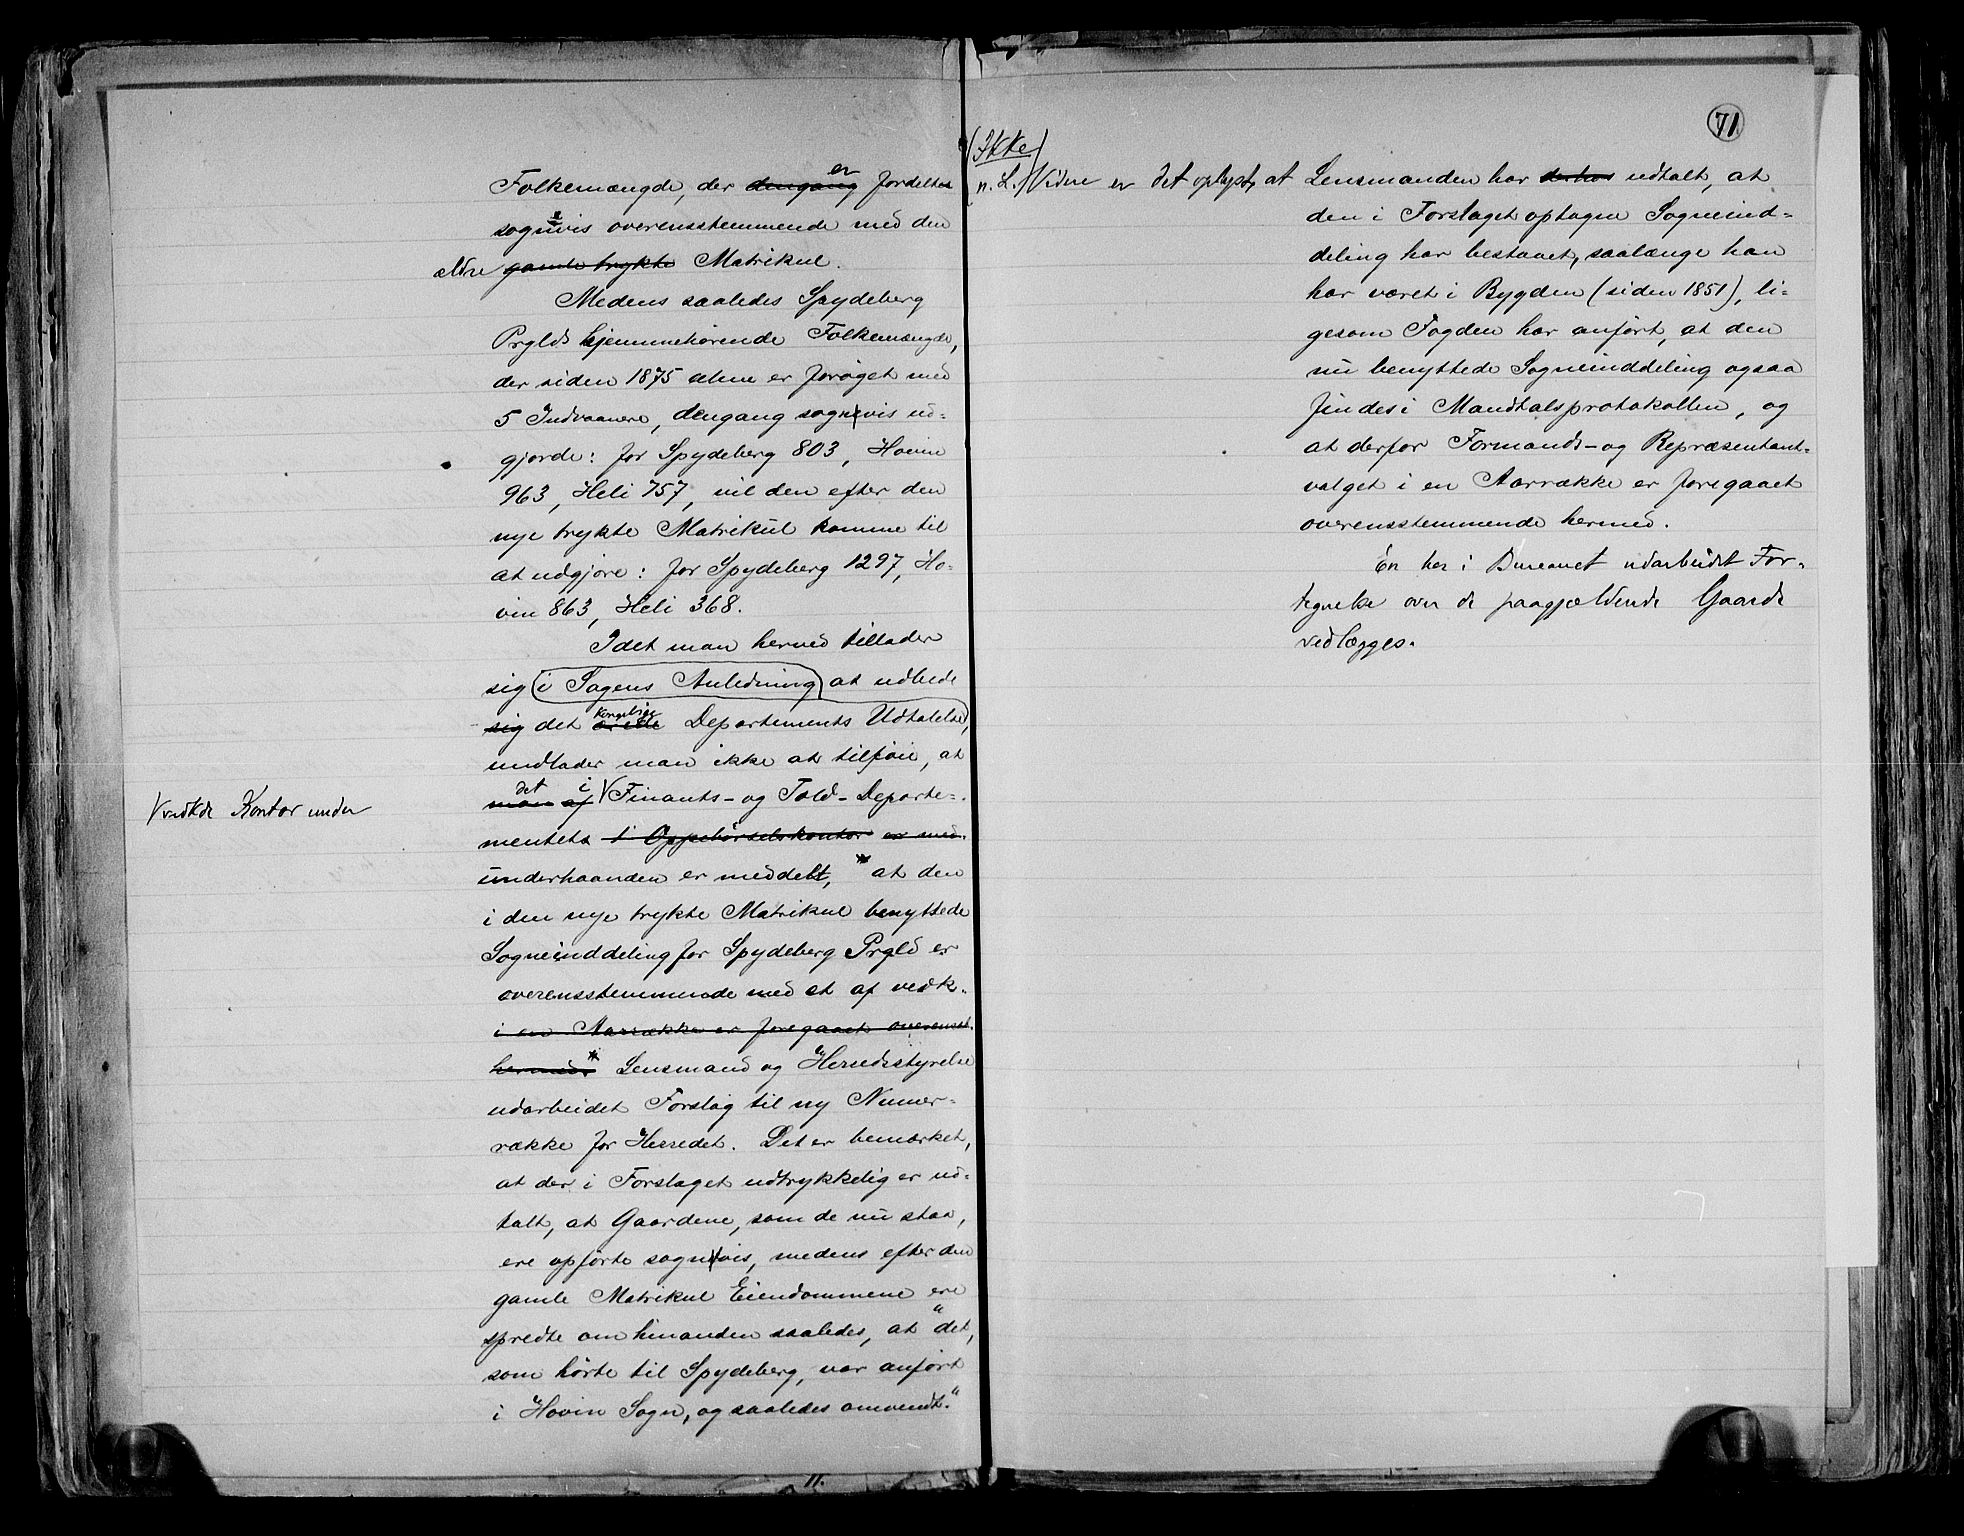 Folkemængde, der dengang er fordelte
sognevis overensstemmende med den
ældre gamle trykte Matrikul.
Medens saaledes Spydeberg
Prglds hjemmehørende Folkemængde,
der siden 1875 alene er forøget med
5 Indvaanere, dengang sognevis ud-
gjorde: for Spydeberg 803, Hovin
963, Heli 757, vil den efter den
nye trykte Matrikul komme til
at udgjøre: for Spydeberg 1297, Ho-
vin 863, Heli 368.
Idet man herved tillader
sig (i Sagens Anledning) at udbede
sig det Kongelige Departements Udtalelse,
undlader man ikke at tilføie, at
man af det i V Finants- og Told-Departe-
V vedkde Kontor under
mentets i Oppebørselskontor er med-
underhaanden er meddelt, * at den
i den nye trykte Matrikul benyttede
Sogneinddeling for Spydeberg Prgld er
overensstemmende med et af vedk.
i en Aarrække er foregaaet overenst.
hermed * Lensmand og Herredsstyrelse
udarbeidet Forslag til ny Numer-
række for Herredet. Det er bemærket,
at der i Forslaget udtrykkelig er ud-
talt, at Gaardene, som de nu staa,
ere opførte sognevis, medens efter den
gamle Matrikul Eiendommene ere
spredte om hinanden saaledes, at "det,
som hørte til Spydeberg, var anført
i Hovin Sogn, og saaledes omvendt."
11.
71
(Ikke
n. L.) Videre er det oplyst, at Lensmanden har derhos udtalt, at
den i Forslaget optagne Sogneind-
deling har bestaaet, saalænge han
har været i Bygden (siden 1851), li-
gesom Fogden har anført, at den
nu benyttede Sogneinddeling ogsaa
findes i Mandtalsprotokollen, og
at derfor Formands- og Repræsentant-
valget i en Aarrække er foregaaet
overensstemmende hermed.
En her i Bureauet udarbeidet For-
tegnelse over de paagjældende Gaarde
vedlægges.